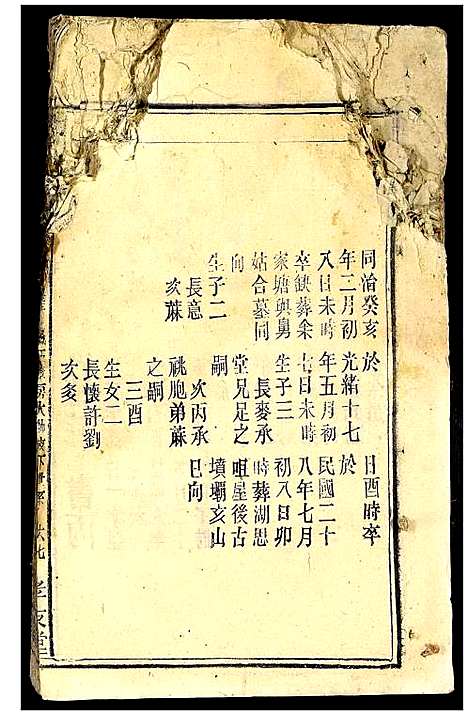 同治癸亥
年二月初
八日未時
卒缺葬朱
家塘與舅
姑合墓同
向
生子二
長意
次蔴
於
光緒十七
年五月初
七日未時
生子三
長麥承
堂兄足之
嗣
次丙承
祧胞弟蔴
之嗣
三酉
生女二
長懷許劉
次多
日酉時卒
於
民國二十
八年七月
初八日卯
時葬湖思
咀屋後古
墳壩亥山
巳向
六七